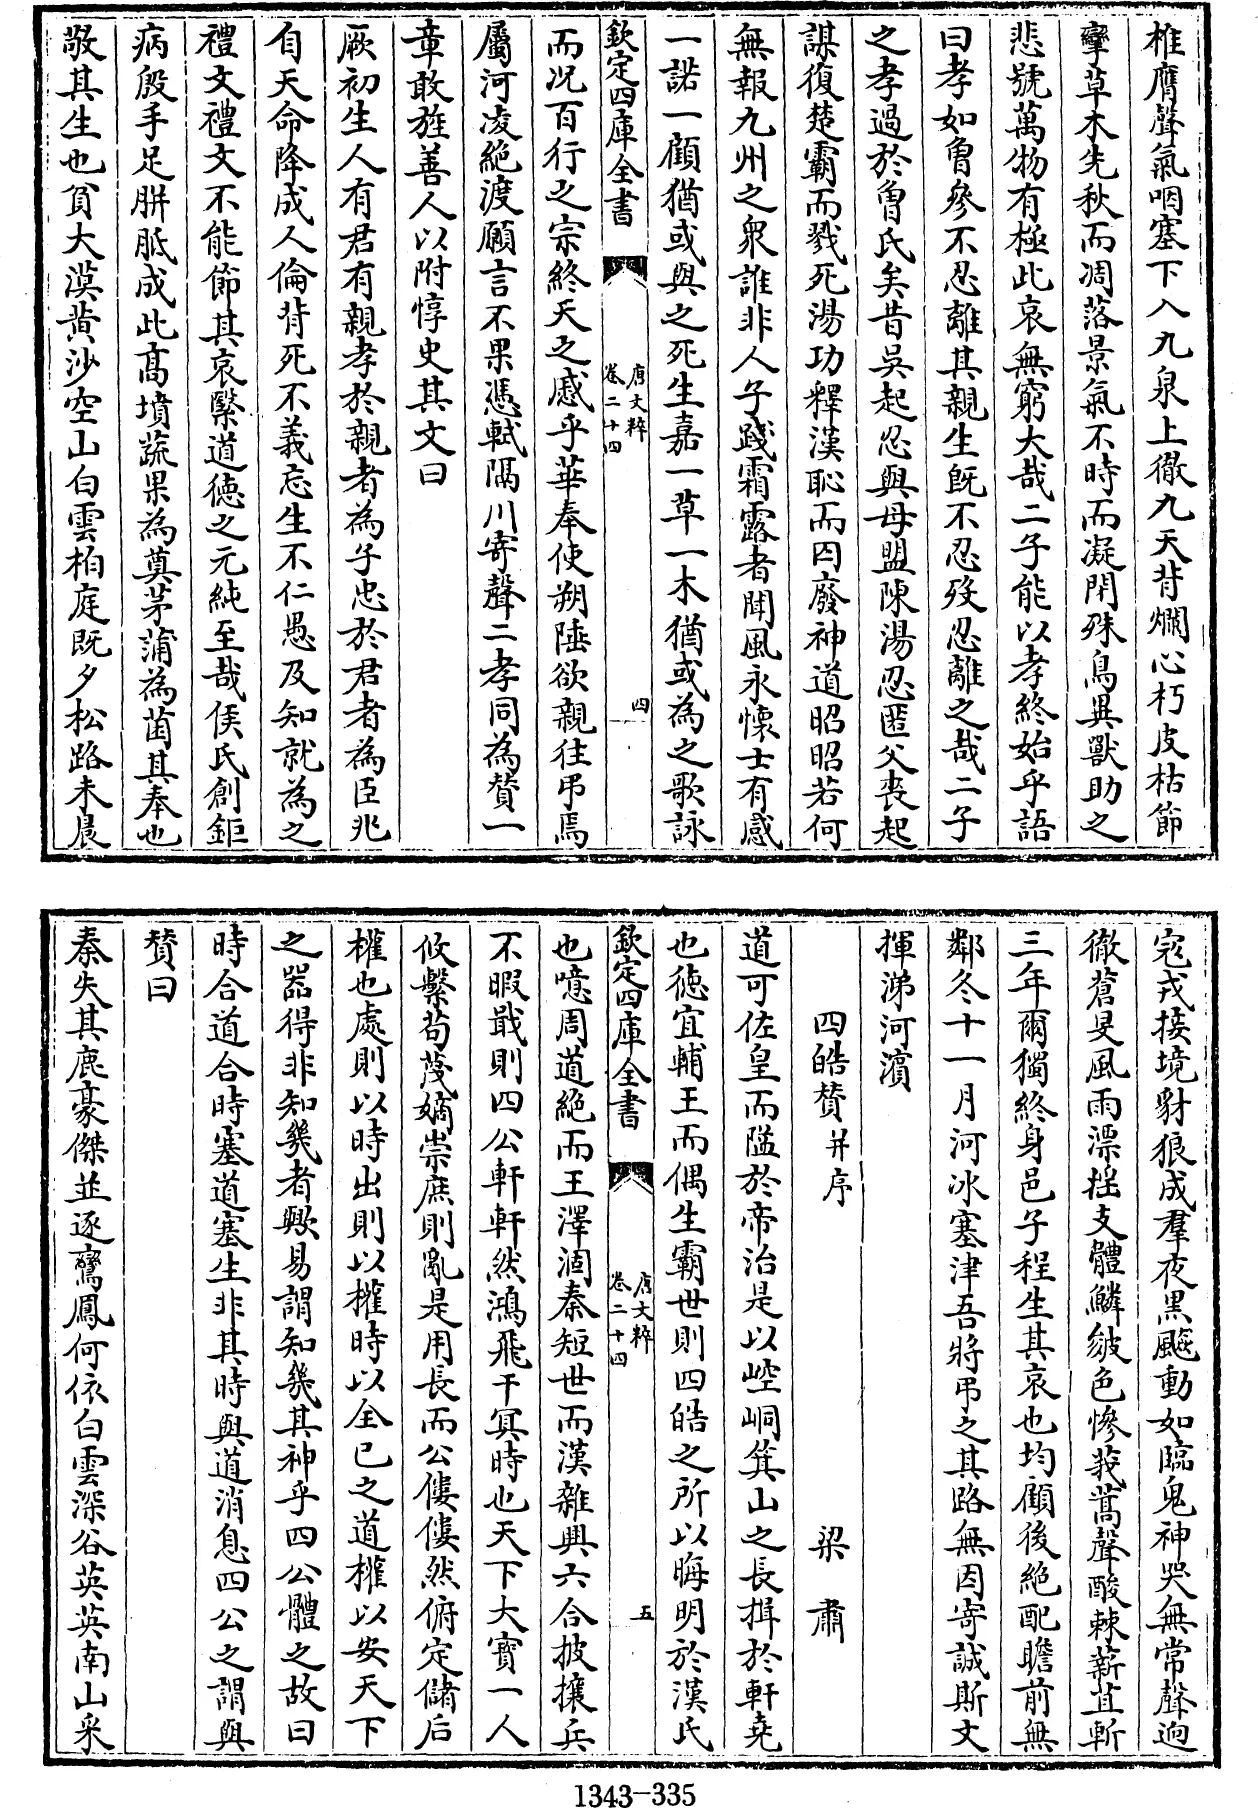 椎膺聲氣咽塞下入九泉上徹九天背爛心朽皮枯節
攣草木先秋而凋落景氣不時而凝閉殊鳥異獸助之
悲號萬物有極此哀無窮大哉二子能以孝終始乎語
曰孝如曾參不忍離其親生既不忍歿忍離之哉二子
之孝過於曾氏矣昔吳起忍與母盟陳湯忍匿父喪起
謀復楚霸而戮死湯功釋漢恥而囚廢神道昭昭若何
無報九州之衆誰非人子踐霜露者聞風永懷士有感
一諾一顧猶或與之死生嘉一草一木猶或為之歌詠
欽定四庫全書 唐文粹 卷二十四 四
而况百行之宗終天之慼乎華奉使朔陲欲親往弔焉
屬河凌絶渡願言不果憑軾隔川寄聲二孝同為贊一
章敢旌善人以附惇史其文曰
厥初生人有君有親孝於親者為子忠於君者為臣兆
自天命降成人倫背死不義忘生不仁愚及知就為之
禮文禮文不能節其哀繄道德之元純至哉侯氏創鉅
病殷手足胼胝成此髙墳蔬果為奠茅蒲為茵其奉也
敬其生也貧大漠黄沙空山白雲柏庭既夕松路未晨
寇戎接境豺狼成羣夜黑飈動如臨鬼神哭無常聲迥
徹蒼旻風雨漂摇支體鱗皴色慘莪蒿聲酸棘薪苴斬
三年爾獨終身邑子程生其哀也均顧後絶配瞻前無
鄰冬十一月河冰塞津吾將弔之其路無因寄誠斯文
揮涕河濱
四皓贊并序 梁肅
道可佐皇而隘於帝治是以崆峒箕山之長揖於軒堯
也德宜輔王而偶生霸世則四皓之所以晦明於漢氏
欽定四庫全書 唐文粹 卷二十四 五
也噫周道絶而王澤涸秦短世而漢雜興六合披攘兵
不暇戢則四公軒軒然鴻飛干冥時也天下大寶一人
攸繫苟蔑嫡崇庶則亂是用長而公僂僂然俯定儲后
權也處則以時出則以權時以全已之道權以安天下
之器得非知㡬者歟易謂知㡬其神乎四公體之故曰
時合道合時塞道塞生非其時與道消息四公之謂與
贊曰
秦失其鹿豪傑並逐鸞鳳何依白雲深谷英英南山采
1343-335